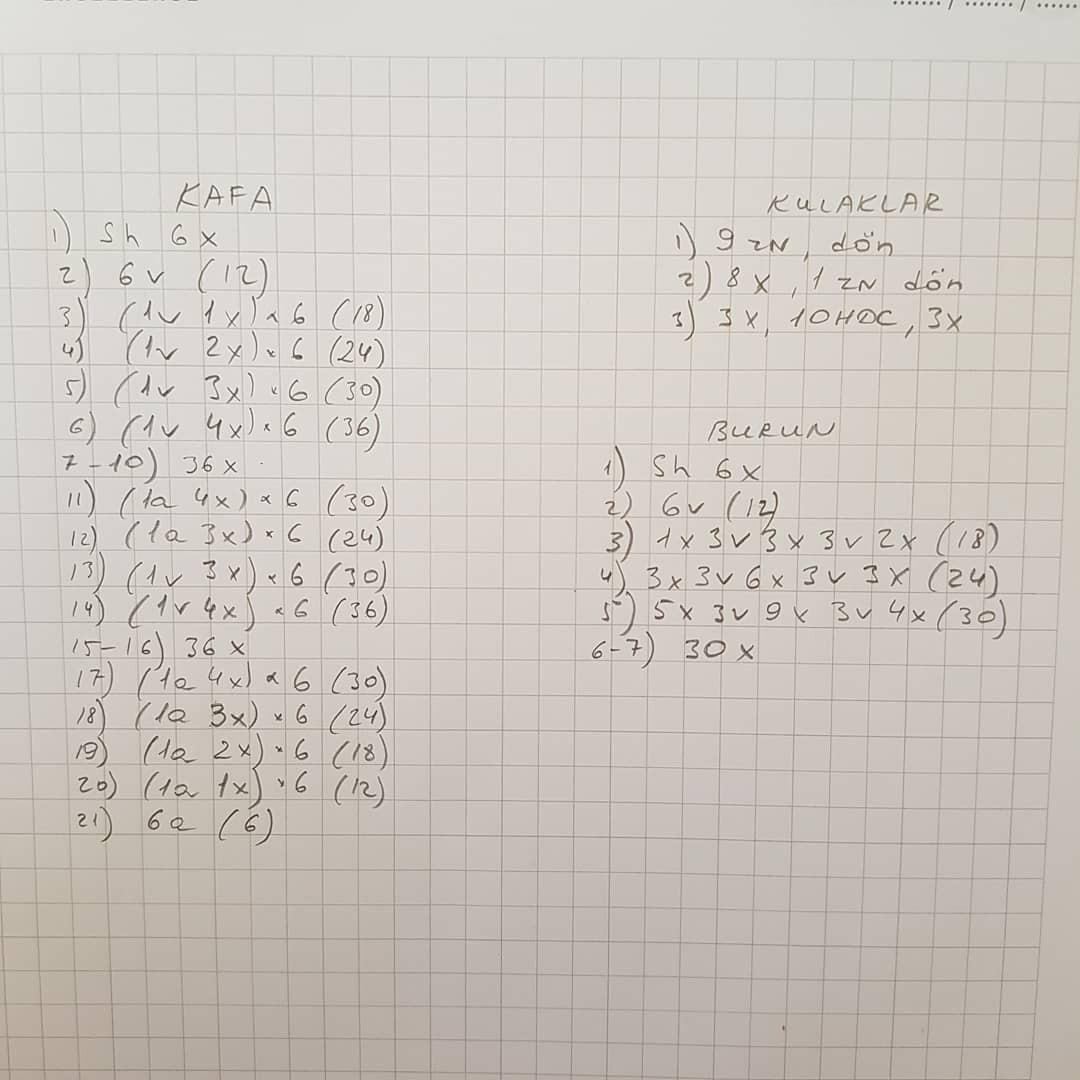 KAFA
1) Sh 6x
2) 6v (12)
3) (1v 1x) x 6 (18)
4) (1v 2x) x 6 (24)
5) (1v 3x) x 6 (30)
6) (1v 4x) x 6 (36)
7-10) 36x
11) (1a 4x) x 6 (30)
12) (1a 3x) x 6 (24)
13) (1v 3x) x 6 (30)
14) (1v 4x) x 6 (36)
15-16) 36x
17) (1a 4x) x 6 (30)
18) (1a 3x) x 6 (24)
19) (1a 2x) x 6 (18)
20) (1a 1x) x 6 (12)
21) 6a (6)
KULAKLAR
1) 9 zN, dön
2) 8x, 1 zN dön
3) 3x, 10HDC, 3x
BURUN
1) Sh 6x
2) 6v (12)
3) 1x 3v 3x 3v 2x (18)
4) 3x 3v 6x 3v 3x (24)
5) 5x 3v 9x 3v 4x (30)
6-7) 30x